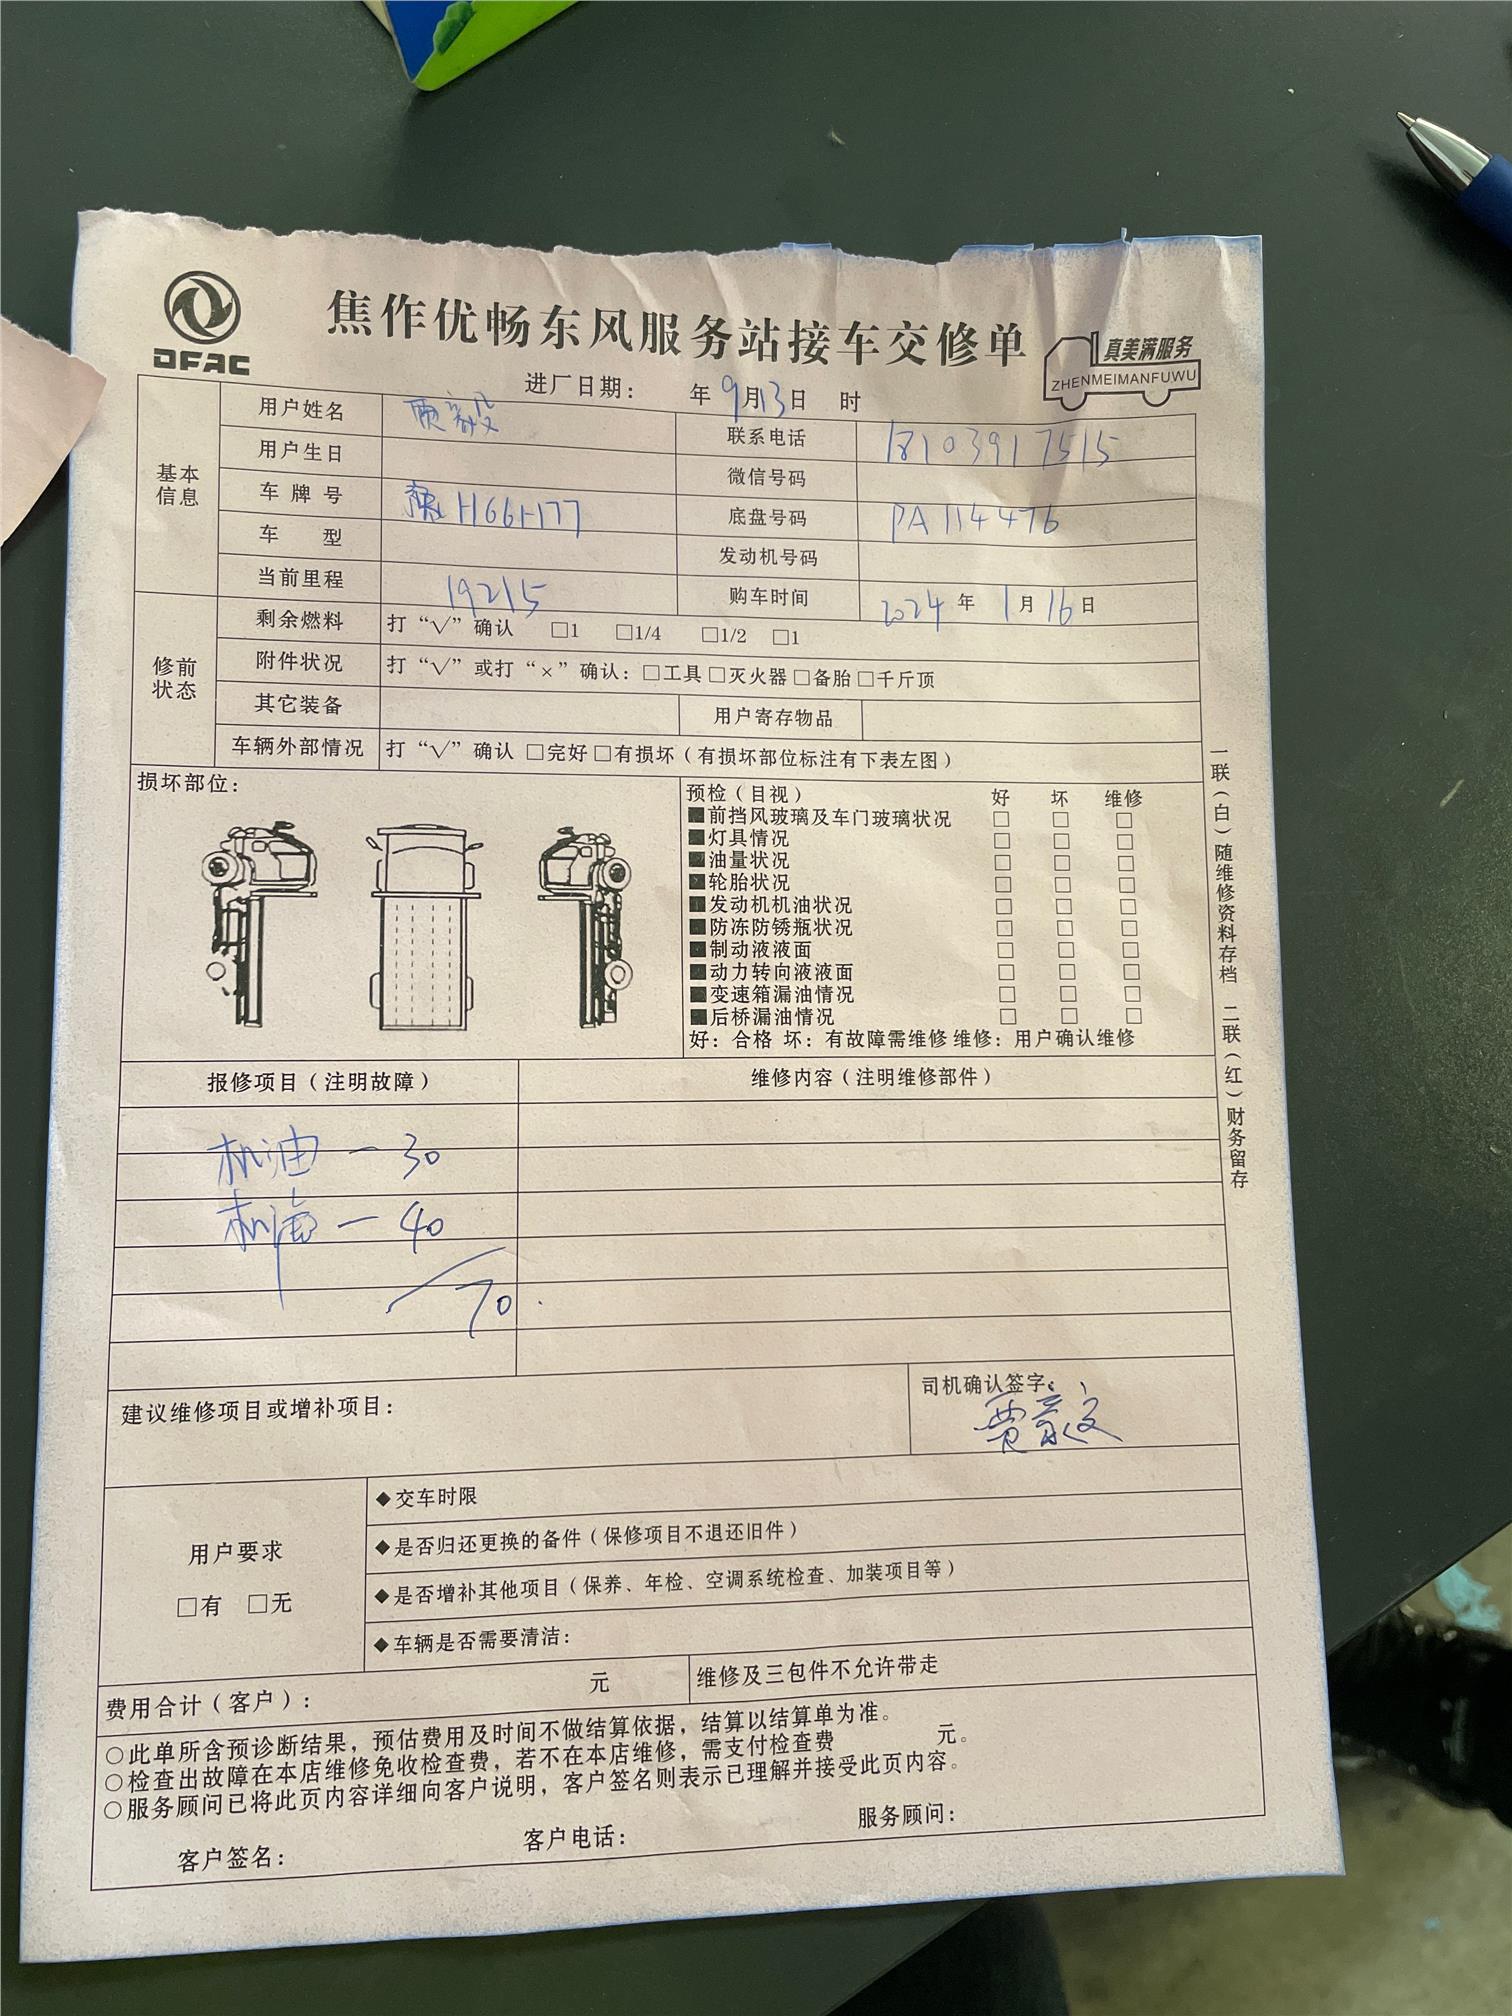 DFAC
焦作优畅东风服务站接车交修单
真美满服务
ZHENMEIMANFUWU
进厂日期： 年 9月13日 时
基本信息
用户姓名 贾毅 联系电话 18103917515
用户生日 微信号码
车牌号 豫H66H77 底盘号码 PA114476
车型 发动机号码
当前里程 19215 购车时间 2024年1月16日
修前状态
剩余燃料 打“√”确认 □1 □1/4 □1/2 □1
附件状况 打“√”或打“×”确认：□工具□灭火器□备胎□千斤顶
其它装备 用户寄存物品
车辆外部情况 打“√”确认 □完好□有损坏（有损坏部位标注有下表左图）
损坏部位：
预检（目视） 好 坏 维修
■前挡风玻璃及车门玻璃状况 □ □ □
■灯具情况 □ □ □
■油量状况 □ □ □
■轮胎状况 □ □ □
■发动机机油状况 □ □ □
■防冻防锈瓶状况 □ □ □
■制动液液面 □ □ □
■动力转向液液面 □ □ □
■变速箱漏油情况 □ □ □
■后桥漏油情况 □ □ □
好：合格 坏：有故障需维修 维修：用户确认维修
一联（白）随维修资料存档 二联（红）财务留存
报修项目（注明故障） 维修内容（注明维修部件）
机油－30
机滤－40
70
建议维修项目或增补项目：
司机确认签字：
贾毅
用户要求
□有 □无
◆交车时限
◆是否归还更换的备件（保修项目不退还旧件）
◆是否增补其他项目（保养、年检、空调系统检查、加装项目等）
◆车辆是否需要清洁：
费用合计（客户）： 元 维修及三包件不允许带走
○此单所含预诊断结果，预估费用及时间不做结算依据，结算以结算单为准。
○检查出故障在本店维修免收检查费，若不在本店维修，需支付检查费 元。
○服务顾问已将此页内容详细向客户说明，客户签名则表示已理解并接受此页内容。
客户签名： 客户电话： 服务顾问：